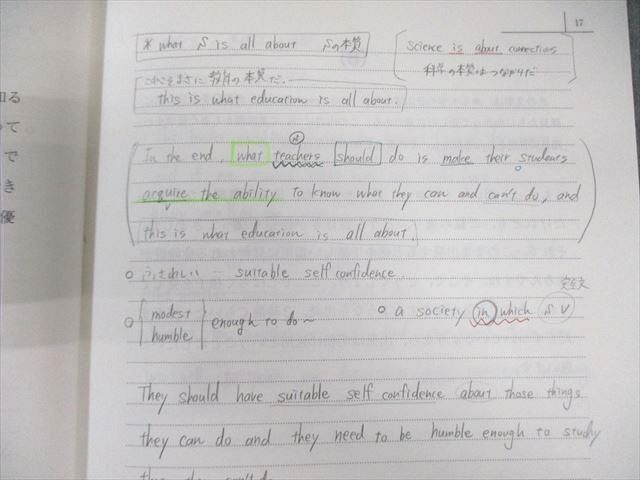 17
* what S is all about Sの本質
science is about connections
科学の本質はつながりだ
これこそまさに教育の本質だ.
this is what education is all about.
In the end, what teachers should do is make their students
acquire the ability to know what they can and can't do, and
this is what education is all about.
○ ふさわしい － suitable self confidence
完全文
○ modest
humble
enough to do ~
○ a society in which S V
They should have suitable self confidence about those things
they can do and they need to be humble enough to study
知る
って
で
き
優